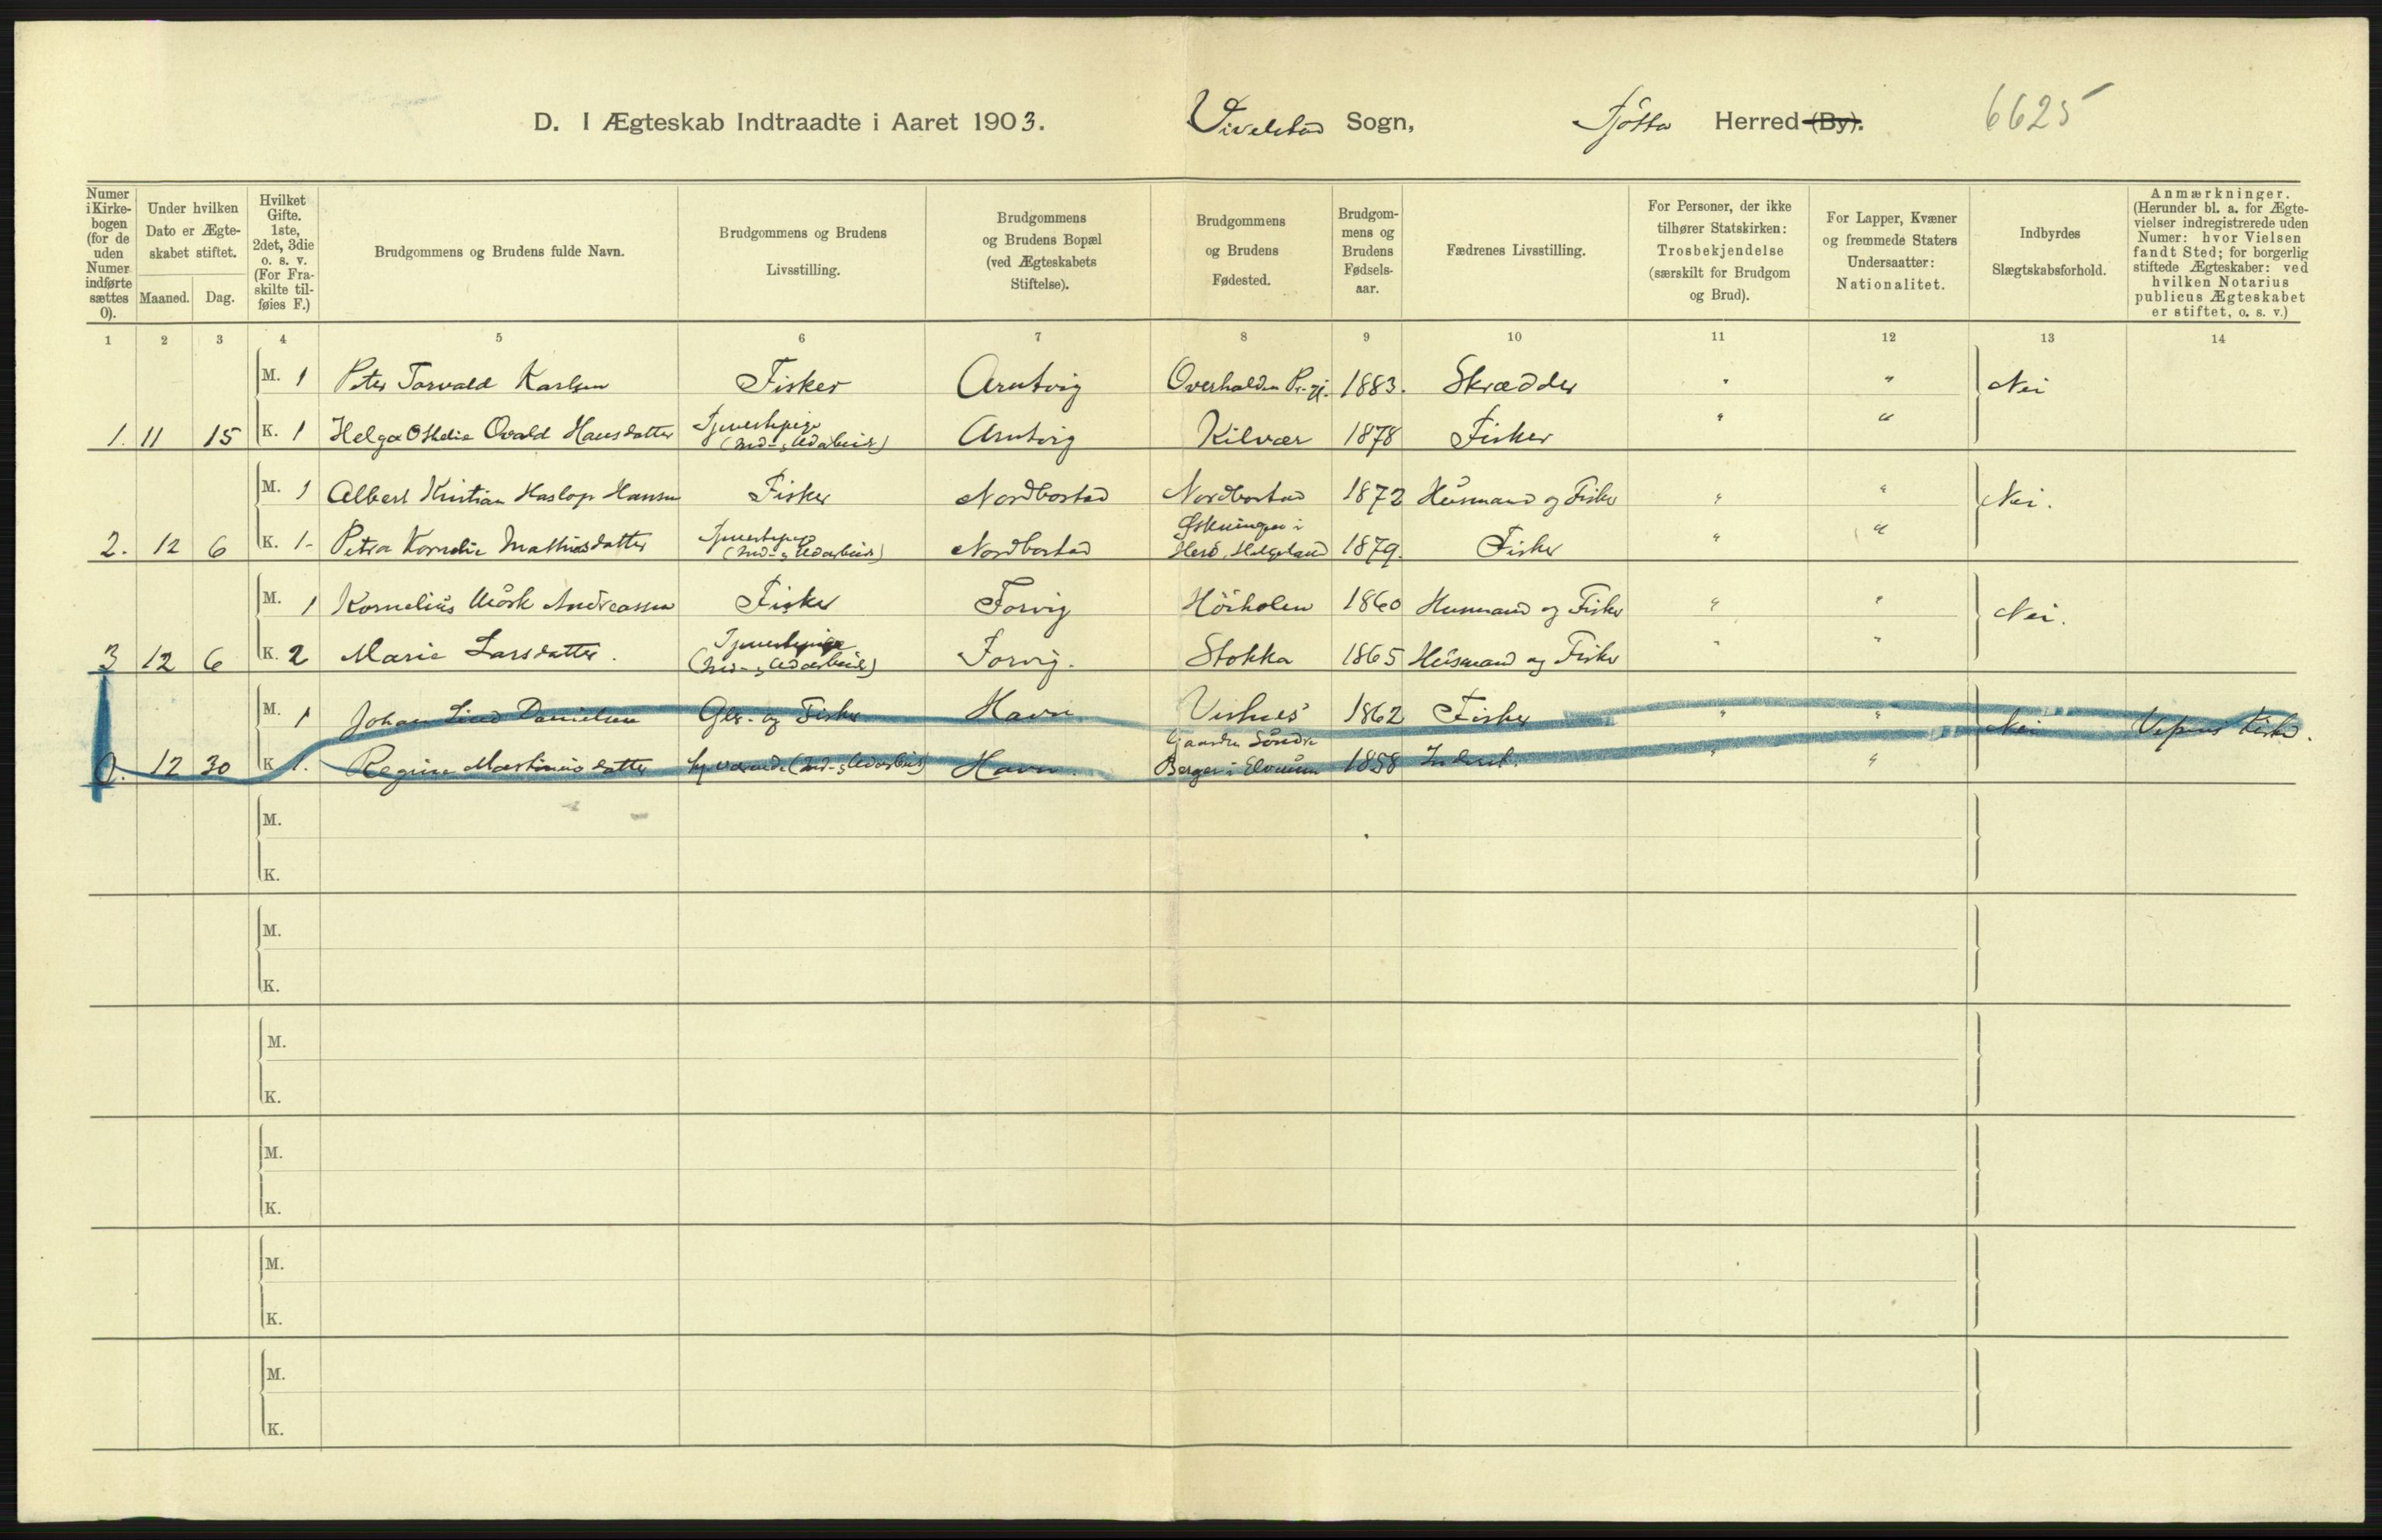 D. I Ægteskab Indtraadte i Aaret 1903. Vivelstad Sogn, Tjøtta Herred (By). 6625
Numer i Kirkebogen (for de uden Numer indførte sættes 0).
Under hvilken Dato er Ægteskabet stiftet.
Maaned. Dag.
Hvilket Gifte. 1ste, 2det, 3die o. s. v. (For Fraskilte tilføies F.)
Brudgommens og Brudens fulde Navn.
Brudgommens og Brudens Livsstilling.
Brudgommens og Brudens Bopæl (ved Ægteskabets Stiftelse).
Brudgommens og Brudens Fødested.
Brudgommens og Brudens Fødselsaar.
Fædrenes Livsstilling.
For Personer, der ikke tilhører Statskirken: Trosbekjendelse (særskilt for Brudgom og Brud).
For Lapper, Kvæner og fremmede Staters Undersaatter: Nationalitet.
Indbyrdes Slægtskabsforhold.
Anmærkninger. (Herunder bl. a. for Ægtevielser indregistrerede uden Numer: hvor Vielsen fandt Sted; for borgerlig stiftede Ægteskaber: ved hvilken Notarius publicus Ægteskabet er stiftet, o. s. v.)
1 2 3 4 5 6 7 8 9 10 11 12 13 14
M. 1 Peter Torvald Karlsen Fisker Arntvig Overhalden Pr.gj. 1883. Skrædder " " Nei
1. 11 15 K. 1 Helga Othelie Ovald Hansdatter Tjenestepige (Ind- & Udarbeid) Arntvig Kilvær 1878 Fisker " "
M. 1 Albert Kristian Haslop Hansen Fisker Nordbostad Nordbostad 1872 Husmand og Fisker " " Nei.
2. 12 6 K. 1- Petra Kornelie Mathiasdatter Tjenestepige (Ind- & Udarbeid) Nordbostad Øskningen i Herö, Helgeland 1879. Fisker " "
M. 1 Kornelius Mörk Andreassen Fisker Forvig Höiholen 1860 Husmand og Fisker " " Nei.
3 12 6 K. 2 Marie Larsdatter. Tjenestepige (Ind- & Udarbeid) Forvig. Stokka 1865 Husmand og Fisker " "
M. 1 Johan Lind Danielsen Gbr. og Fisker Havn Vistnes 1862 Fisker " " Nei
0. 12 30 K 1. Regine Martinusdatter Hjemmeværende (Ind- & Udarbeid) Havn. Gaarden Söndre Berger i 1858 Inderst. " "
M.
K.
M.
K.
M.
K.
M.
K.
M.
K.
M.
K.